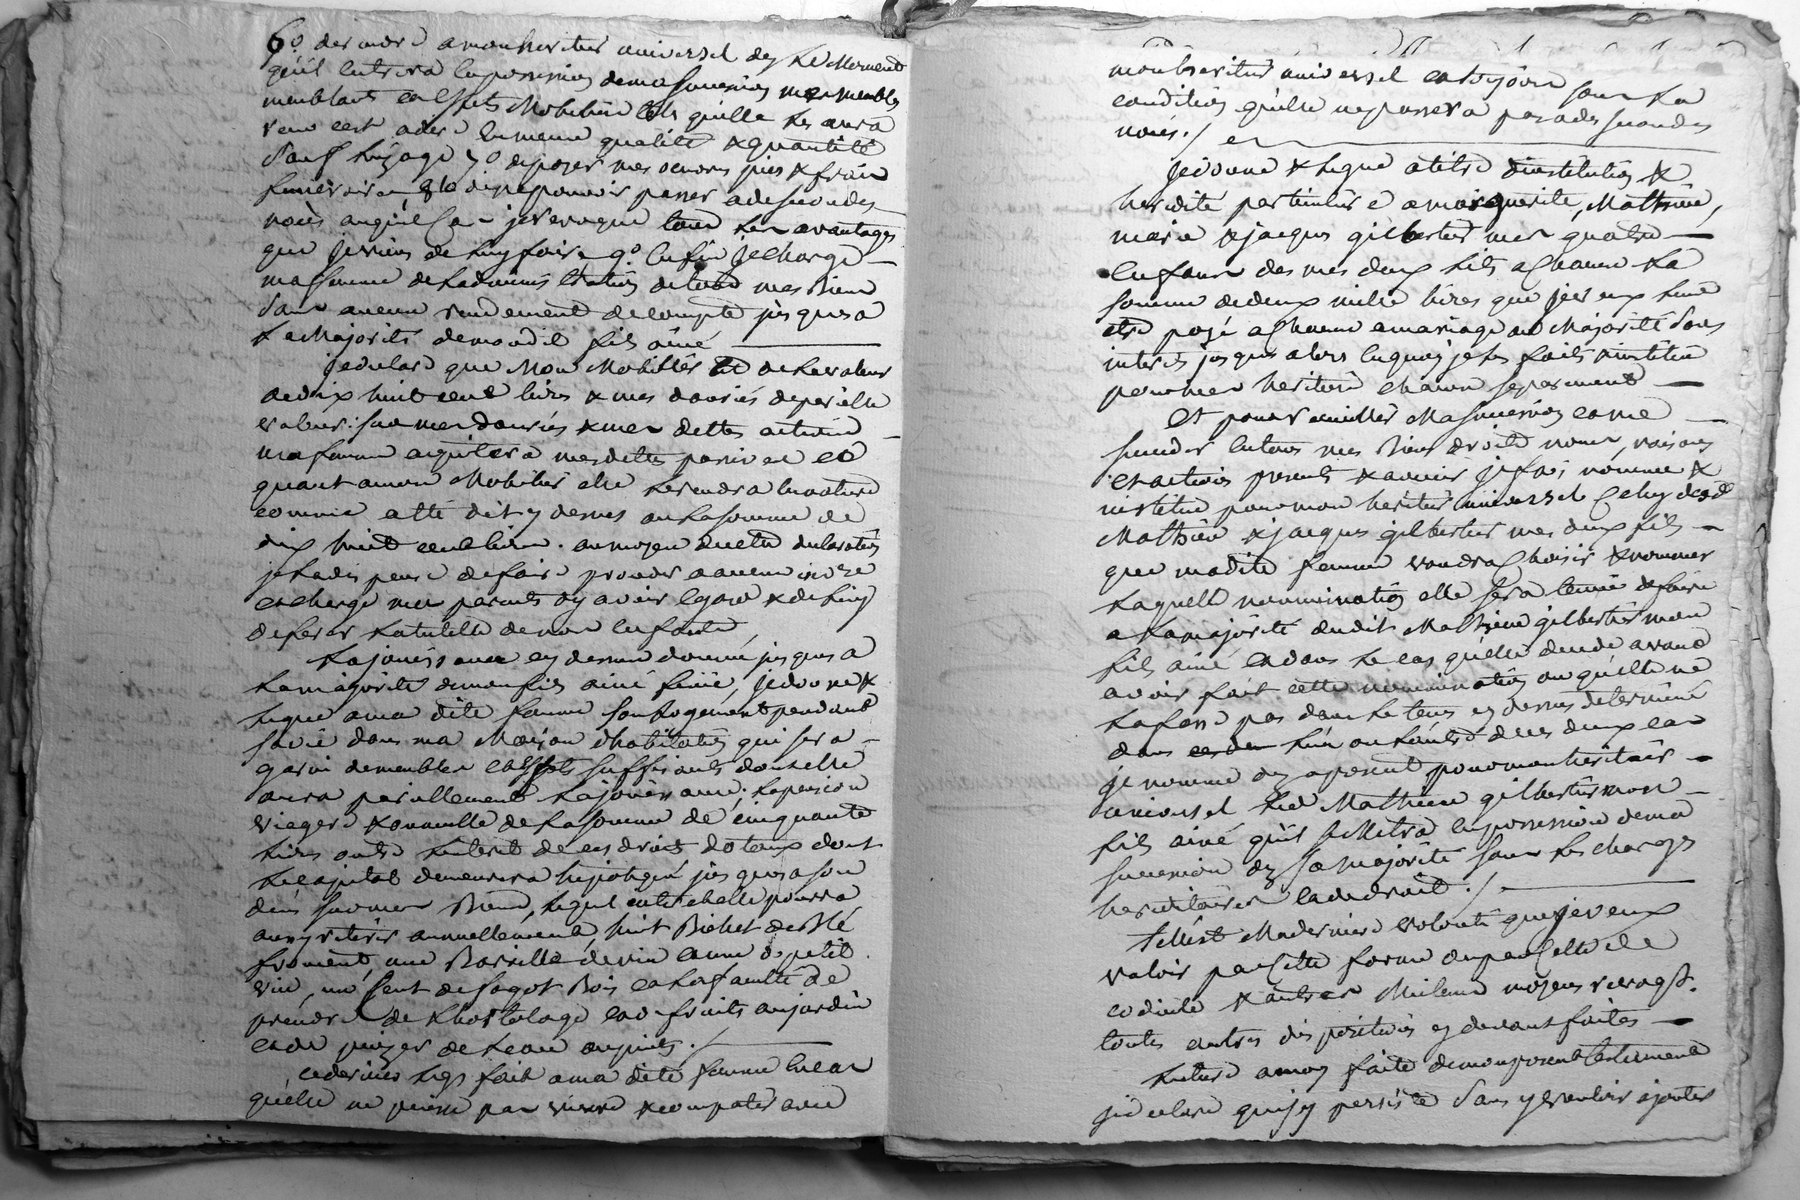 6° de rendre a mon heritier universel dez le Moment
qu'il entrera en possession de ma succession mes meubles
meublants et effets Mobiliers tels qu'elle les aura
receu c'est a dire en meme qualité & quantité
Sauf l'uzage 7° de payer mes oeuvres pies & frais
funeraires 8° de ne pouvoir passer a de secondes
noces auquel cas je revoque tous les avantages
que je viens de luy faire 9° enfin je charge
ma femme de l'administration de tous mes Biens
sans aucun rendement de compte jusques a
la Majorité de mondit fils ainé
je declare que Mon Mobilier est de la valeur
de dix huit cent livres & mes denrées de pareille
valeur: sur mes denrées & mes dettes actives
ma femme aquitera mes dettes passives et
quant a mon Mobilier elle le rendra en nature
comme a été dit cy dessus ou la somme de
dix huit cent livres. au moyen de cette declaration
je la dispense de faire proceder a aucun invre
et charge mes parents d'y avoir egard & de luy
deferer la tutelle de nos enfants
La jouissance cy dessus donnée jusques a
la majorité de mon fils ainé finie, je donne &
legue a ma dite femme son logement pendant
sa vie dans ma Maison d'habitation qui sera
garni de meubles et effets suffisants dont elle
aura pareillement la jouissance; la pension
viagere & annuelle de la somme de cinquante
livres outre l'interet de ses droits dotaux dont
le capital demeurera hipotequé jusques a son
deces sur mes Biens, legue encore elle pourra
annuellement, huit Bichet de Blé
froment, une Barrille de vin et une de petit
vin, un cent de fagot Bois et la faculté de
prendre de l'hortolage et de fruits au jardin
et de puizer de l'eau au puits./
ce dernier legs fait a ma dite femme en cas
qu'elle ne puisse pas vivre & compatir avec
mon heritier universel et toujours sous la
condition qu'elle ne passera pas a de secondes
noces./
Je donne & legue a titre d'institution &
heredité particuliere a marguerite, Mathieu,
marie & jacques gilbertier mes quatre
enfans des mes deux lits a chacun la
somme de deux mille livres que je veux leur
etre payé a chacun a mariage ou Majorité sans
interets jusques alors en quoy je les faits & institue
pour mes heritiers chacun separement
Et pour recueillir Ma succession et me
succeder en tous mes Biens droits noms, raisons
et actions presents & a venir je fais, nomme &
institue pour mon heritier universel celuy desd
Mathieu & jacques gilbertier mes deux fils
que madite femme voudra choisir & nommer
laquelle nomination elle sera tenue de faire
a la majorité dudit Mathieu gilbertier mon
fils ainé et dans le cas qu'elle decede avant
avoir fait cette nomination ou qu'elle ne
la fasse pas dans le tems cy dessus determiné
dans l'un ou l'autre de ces deux cas
je nomme dez apresent pour mon heritier
universel led Mathieu gilbertier mon
fils ainé qui se Mettra en possession de ma
succession dez sa majorité sous les charges
hereditaires et de droit./
Telle est Ma derniere volonté que je veux
valoir par cette forme ou par celle de
codicile & autres Meilleurs moyens revoqt.
toutes autres dispositions cy devant faites
Lecture a moy faite de mon present testament
je declare que j'y persiste sans y vouloir ajouter